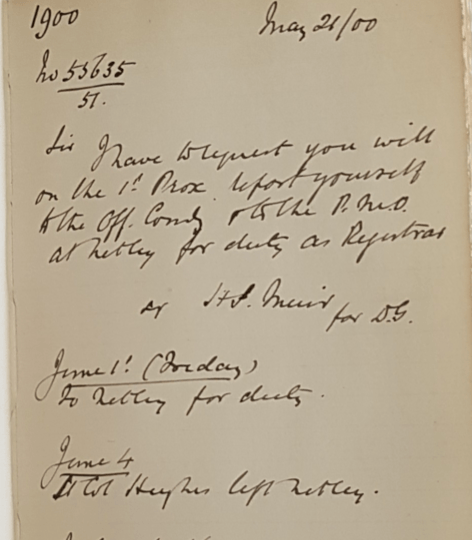 1900
May 21/00
No 55635
51.
Sir I have to request you will
on the 1st Prox. report yourself
to the Off. Comdg & to the P.M.O.
at Netley for duty as Registrar
sr H.S. Muir
for D.G.
June 1st (Friday)
To Netley for duty.
June 4
Lt Col Hughes left Netley.